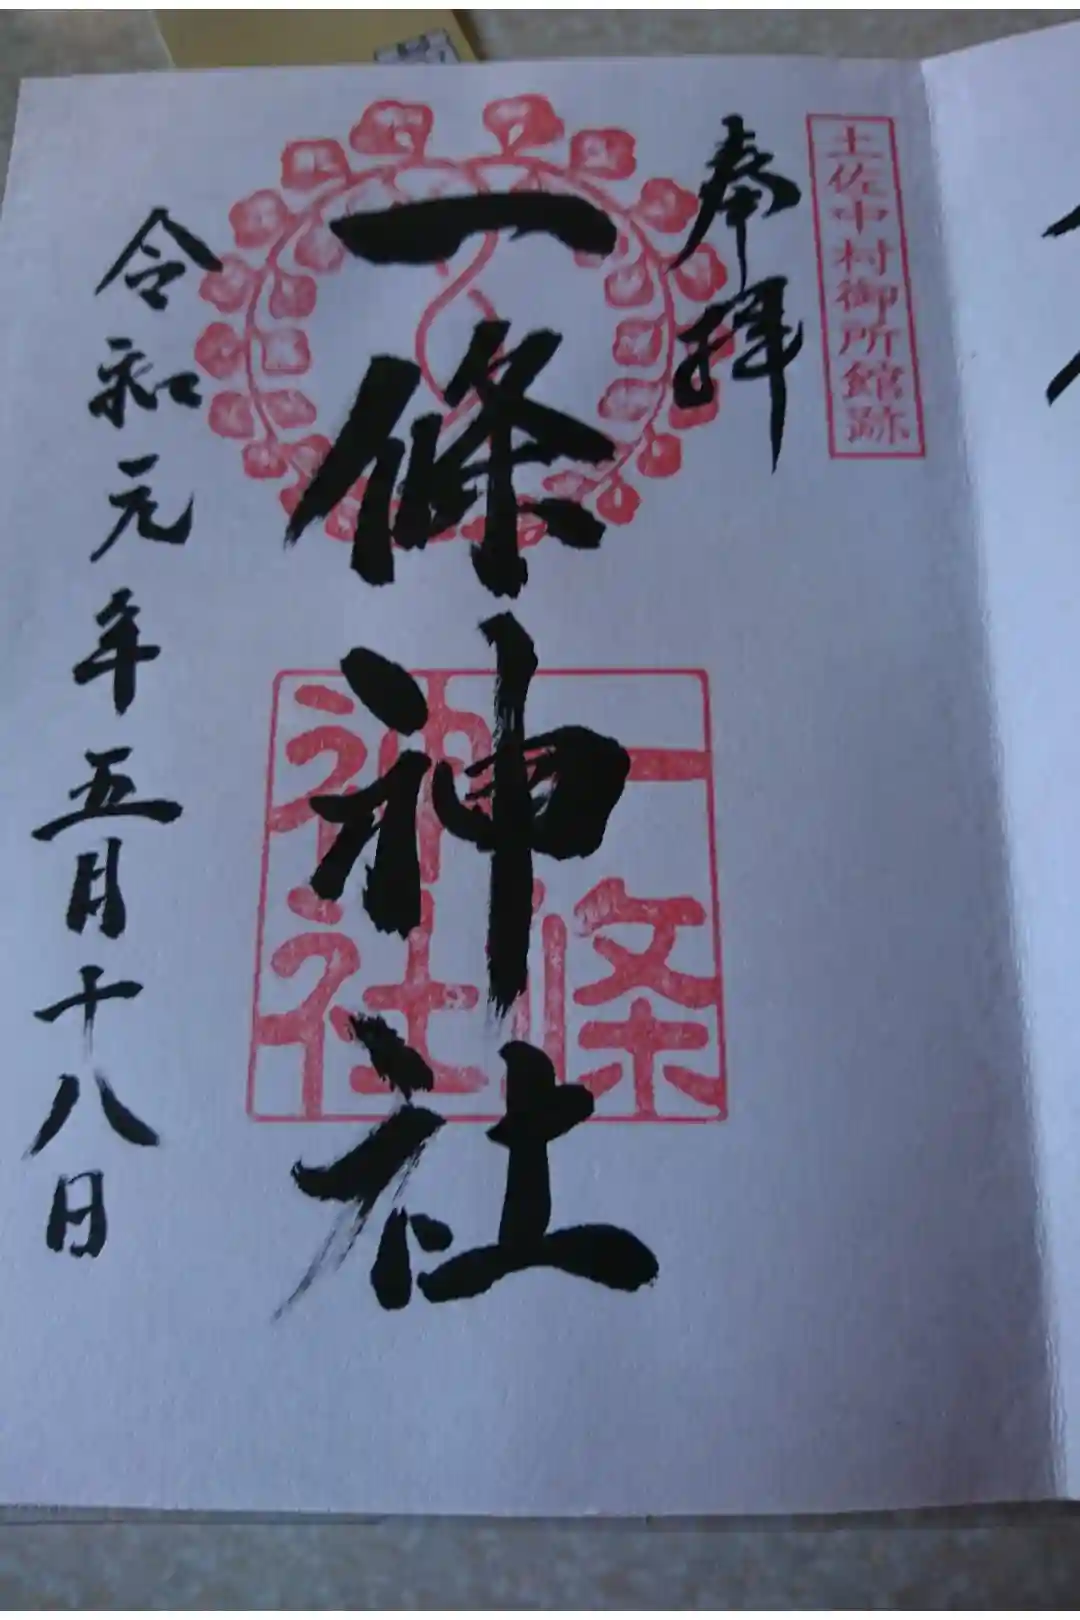 土佐中村御所館跡
奉拝
一條神社
一條
神社
令和元年五月十八日